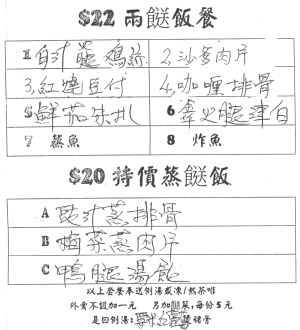 $22 兩餸飯餐
1 白汁 腿 鷄
2.沙爹肉片
3.紅燒豆付
4.咖喱排骨
5 鮮茄
6 火腿津白
7 蒸魚
8 炸魚
$20 特價蒸餸飯
A 豉汁蒸排骨
B 梅菜蒸肉片
C 鴨腿湯飯
以上套餐奉送例湯或凍/熱茶啡
外賣不設加一元 另加餸菜,每份5元
是日例湯: 豬骨